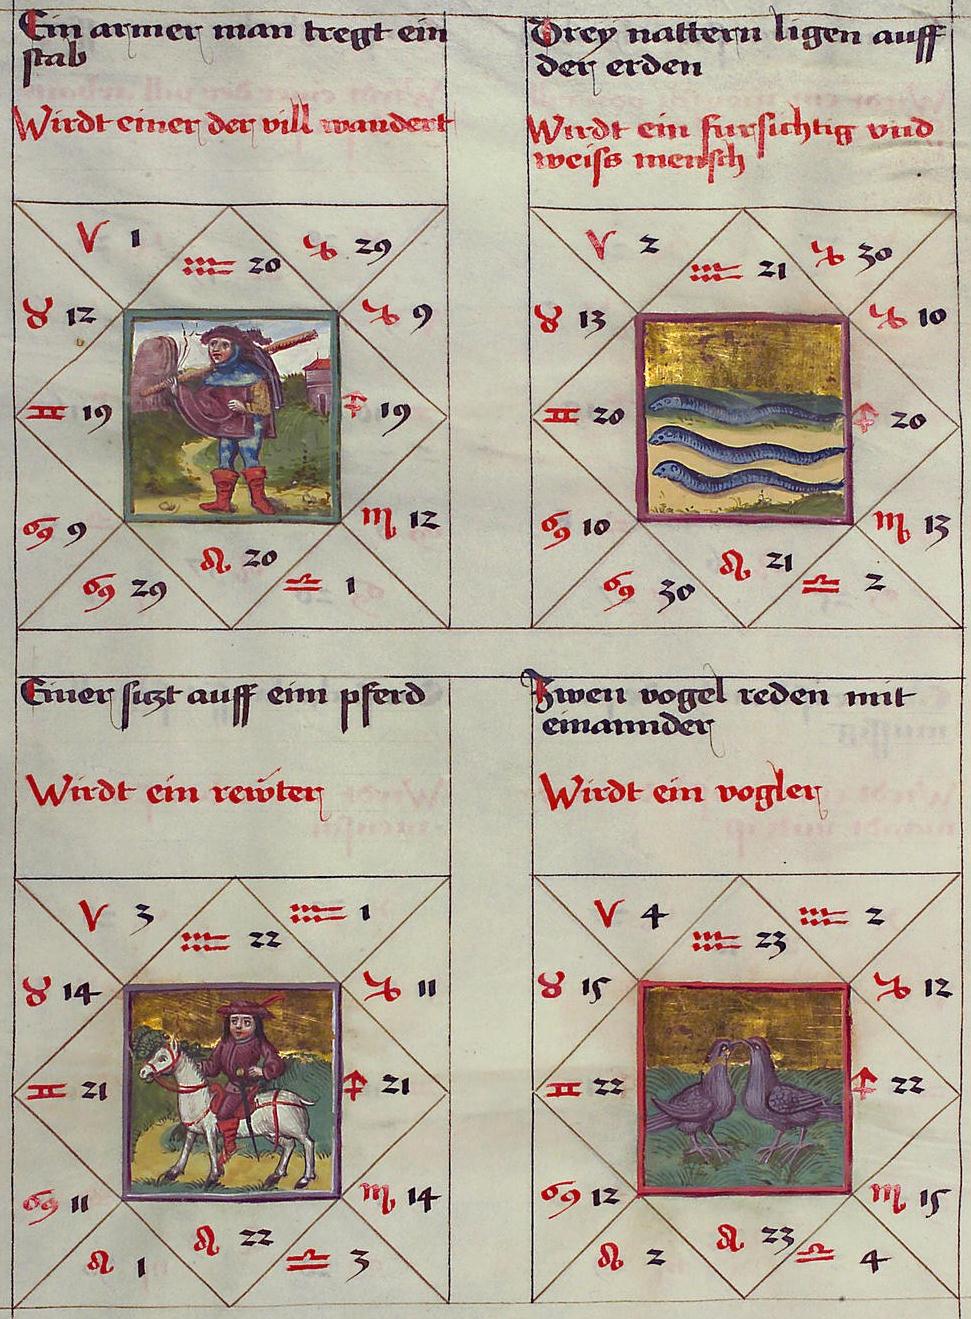 Ein armer man tregt ein
stab
Wirdt einer der vill wandert
♈ 1
♒ 20
♑ 29
♉ 12
♑ 9
♊ 19
♐ 19
♋ 9
♏ 12
♌ 20
♋ 29
♎ 1
Drey nattern ligen auff
der erden
Wirdt ein fursichtig vnd
weiss mensch
♈ 2
♒ 21
♑ 30
♉ 13
♑ 10
♊ 20
♐ 20
♋ 10
♏ 13
♌ 21
♋ 30
♎ 2
Einer siczt auff eim pferd
Wirdt ein rewter
♈ 3
♒ 22
♒ 1
♉ 14
♑ 11
♊ 21
♐ 21
♋ 11
♏ 14
♌ 22
♌ 1
♎ 3
Zwen vogel reden mit
einannder
Wirdt ein vogler
♈ 4
♒ 23
♒ 2
♉ 15
♑ 12
♊ 22
♐ 22
♋ 12
♏ 15
♌ 23
♌ 2
♎ 4